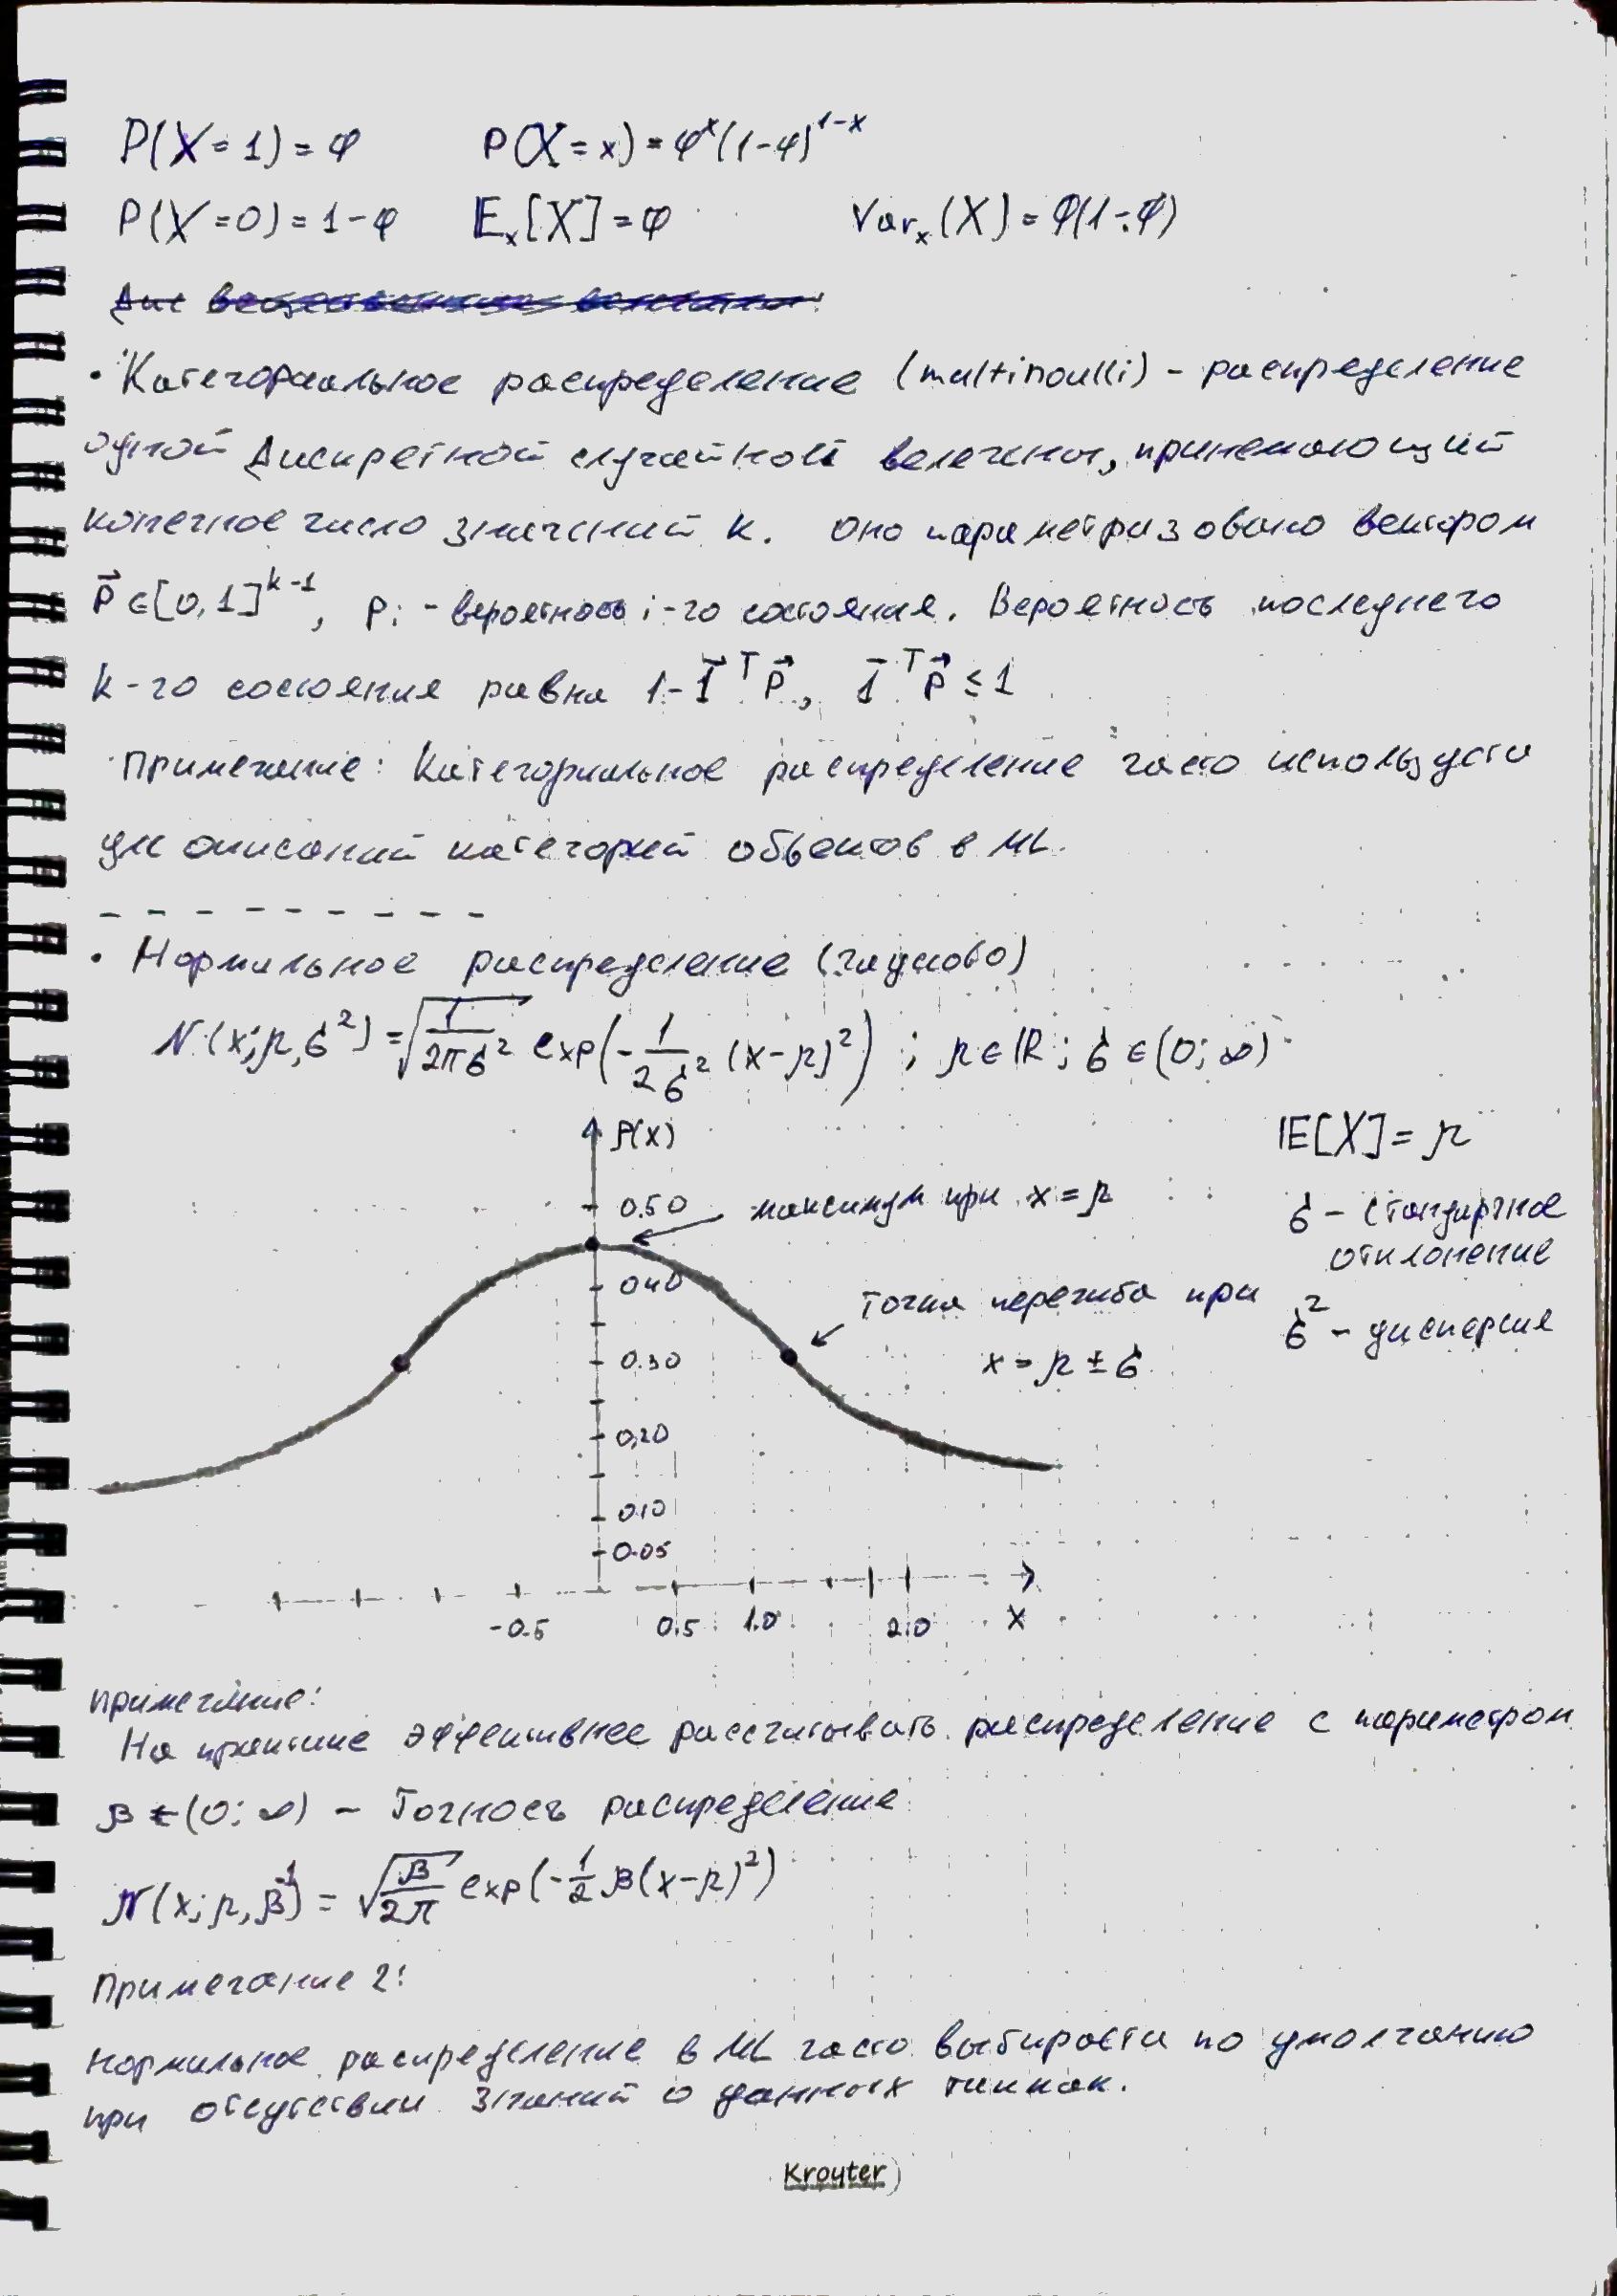 P(X=1) = φ P(X=x) = φ^x (1-φ)^{1-x}
P(X=0) = 1-φ E_x[X] = φ Var_x(X) = φ(1-φ)
• Категориальное распределение (multinoulli) - распределение
одной Дискретной случайной величины, принемающий
конечное число значений k. Оно параметризовано вектором
p⃗ ∈ [0,1]^{k-1}, p_i - вероятность i-го состояния. Вероятность последнего
k-го состояния равна 1 - 1⃗^T p⃗, 1⃗^T p⃗ ≤ 1
Примечание: Категориальное распределение часто используется
для описаний категорий объектов в ML.
• Нормальное распределение (гауссово)
N(x; μ, σ²) = √(1/(2πσ²)) exp(-1/(2σ²) (x-μ)²) ; μ ∈ ℝ ; σ ∈ (0; ∞)
p(x)
E[X] = μ
0.50 максимум при x = μ
σ - стандартное
отклонение
0.40
Точка перегиба при
x = μ ± σ
σ² - дисперсия
0.30
0.20
0.10
0.05
-0.5 0.5 1.0 2.0 x
Примечание:
На практике эффективнее рассчитывать распределение с параметром
β ∈ (0; ∞) - Точность распределение
N(x; μ, β^{-1}) = √(β/(2π)) exp(-1/2 β(x-μ)²)
Примечание 2:
Нормальное распределение в ML часто выбирается по умолчанию
при отсутствии знаний о данных
Kroyter